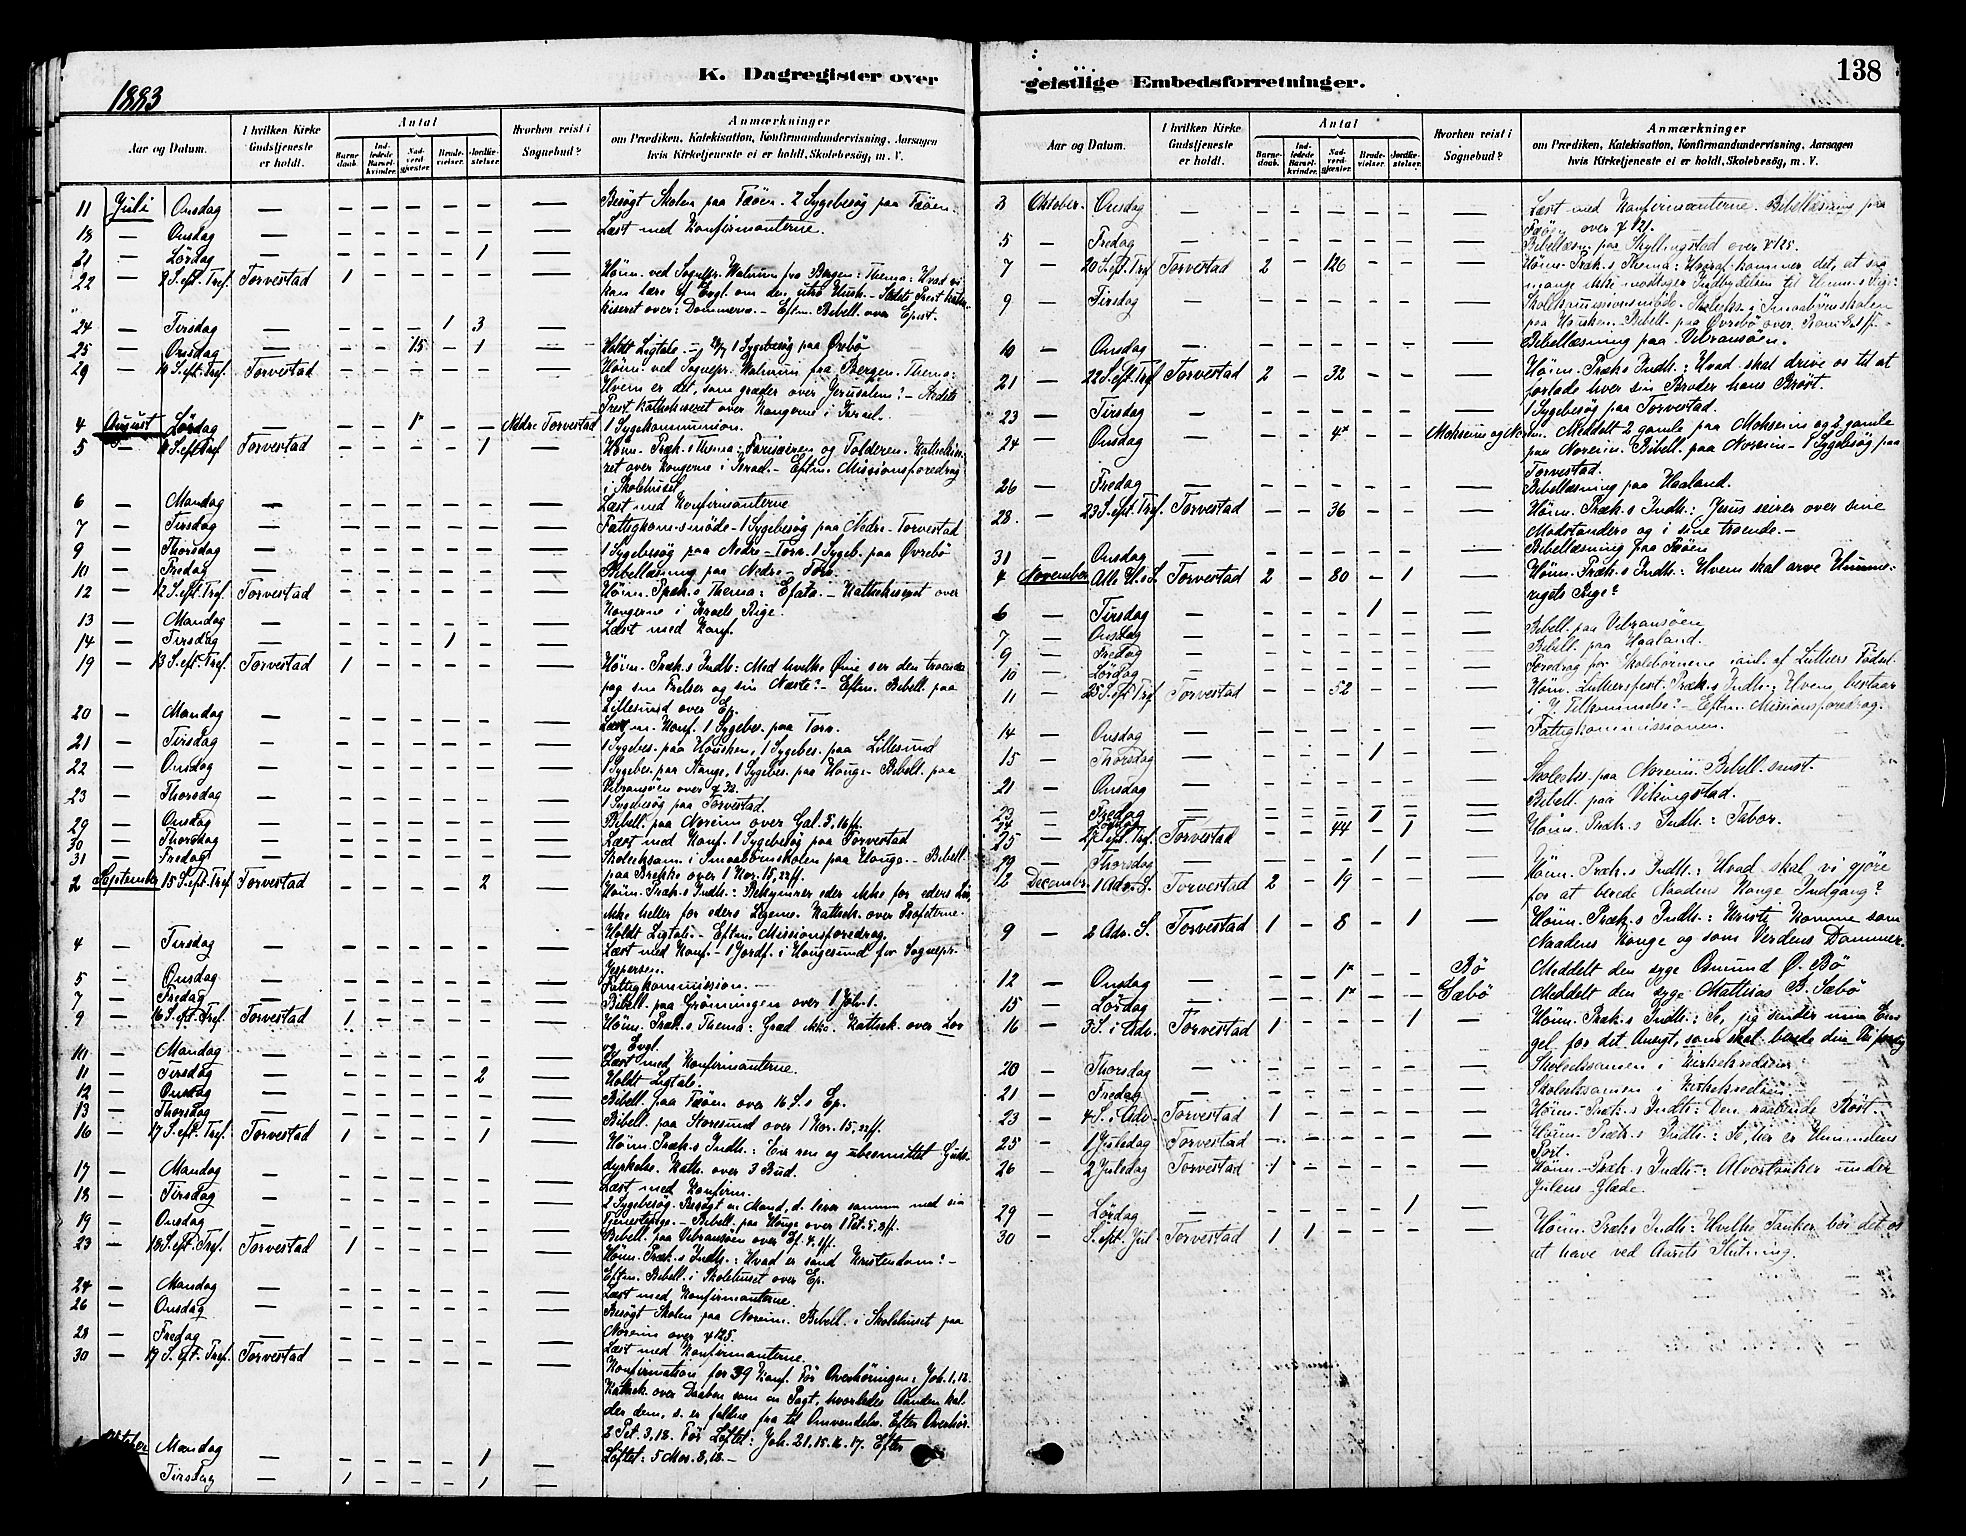 K. Dagregister over
1883
Aar og Datum.
I hvilken Kirke Gudstjeneste er holdt.
Antal
Barnedaab.
Indledede Barselkvinder.
Nadverdgjæster.
Brudevielser.
Jordfæstelser.
Hvorhen reist i Sognebud?
Anmærkninger
om Prædiken, Katekisation, Konfirmandundervisning, Aarsagen
hvis Kirketjeneste ei er holdt, Skolebesøg, m. V.
11 Juli Onsdag — — — — — — — Besøgt Skolen paa Fæøen. 2 Sygebesøg paa Fæøen.
18 — Onsdag — — — — — — — Læst med Konfirmanterne.
21 — Lördag — — — — — 1 —
22 — 9 S. eft. Tref. Torvestad 1 — — — — — Höim. ved Sognepr. Walnum fra Bergen. Thema: Hvad vi
kan lære af Evgl. om den utro Hush. Stedets Prest kate-
kiseret over: Dommerne. — Eftm. Bibell. over Epist.
24 — Tirsdag — — — — 1 3 —
25 — Onsdag — — — 15 — 1 — Holdt Ligtale. 1 Sygebesøg paa Örebö
29 — 10 S. eft. Tref. Torvestad — — — — — — Höim. ved Sognepr. Walnum fra Bergen. Thema:
Hvem er det, som græder over Jerusalem? — Stedets
Prest katekiseret over Kongerne i Israel.
4 August Lördag — — — 1* — — Nedre Torvestad 1 Sygekommunion.
5 — 11 S. eft. Tref. Torvestad — — — — 1 — Höim. Præk.s Thema: Farisæeren og Tolderen. Katekise-
ret over Kongerne i Israel. — Eftm. Missionsforedrag
i Skolehuset
6 — Mandag — — — — — — — Læst med Konfirmanterne
7 — Tirsdag — — — — — — — Fattigkom.smöde — 1 Sygebesøg paa Nedre-Torvestad
9 — Thorsdag — — — — — — — 1 Sygebesøg paa Nedre-Torv. 1 Sygeb. paa Øvrebö
10 — Fredag — — — — — — — Bibellæsning paa Nedre-Torv.
12 — 12 S. eft. Tref. Torvestad — — — — — — Höim. Præk.s Thema: Efata. — Katekiseret over
Kongerne i Israels Rige.
13 — Mandag — — — — — — — Læst med Konf.
14 — Tirsdag — — — — 1 — —
19 — 13 S. eft. Tref. Torvestad 1 — — — — — Höim. Præk.s Indh: Med hvilke Øine ser den troende
paa sin Frelser og sin Næste? — Eftm. Bibell. paa
Lillesund over Ep.
20 — Mandag — — — — — — — Læst m. Konf. 1 Sygebes. paa Torv.
21 — Tirsdag — — — — — — — 1 Sygebes. paa Hausken, 1 Sygebes. paa Lillesund
22 — Onsdag — — — — — — — 1 Sygebes. paa Stange, 1 Sygebes. paa Hauge — Bibell. paa
Vibransöen over ψ 32.
23 — Thorsdag — — — — — — — 1 Sygebesøg paa Torvestad.
29 — Onsdag — — — — — — — Bibell. paa Noreim over Gal. 5, 16 ff.
30 — Thorsdag — — — — — — — Læst med Konf. 1 Sygebesøg paa Torvestad
31 — Fredag — — — — — — — Skoleeksam. i Smaabörnsskolen paa Hauge. — Bibell.
paa Brekke over 1 Kor. 15, 22 ff.
2 September 15 S. eft. Tref. Torvestad — — — — 2 — Höim. Præk.s Indh: Bekymrer eder ikke for eders Liv,
ikke heller for eders Legeme. Katek. over Profeterne.
Holdt Ligtale. — Eftm. Missionsforedrag.
4 — Tirsdag — — — — — — — Læst med Konf. — 1 Jordf. i Haugesund for Sognepr.
Jespersen.
5 — Onsdag — — — — — — — Fattigkommission. —
7 — Fredag — — — — — — — Bibell. paa Grönningen over 1 Joh. 1.
9 — 16 S. eft. Tref. Torvestad 1 — — — — — Höim. Præk.s Thema: Græd ikke. Katek. over Lov
og Evgl.
10 — Mandag — — — — — — — Læst med Konfirmanterne.
11 — Tirsdag — — — — — 2 — Holdt Ligtale.
12 — Onsdag — — — — — — — Bibell. paa Fæöen over 16 S.s Ep.
13 — Thorsdag — — — — — — — Bibell. paa Storesund over 1 Kor. 15, 22 ff.
16 — 17 S. eft. Tref. Torvestad 1 — — — 1 — Höim. Præk.s Indh.: En ren og ubesmittet Guds-
dyrkelse. Katk. over 3 Bud.
17 — Mandag — — — — — — — Læst med Konfirm.
18 — Tirsdag — — — — — — — 2 Sygebesög. Besögt en Mand, d. lever sammen med sin
Tjenestepige. — Bibell. paa Hauge over 1 Pet. 5, 8 ff.
19 — Onsdag — — — — — — — Bibell. paa Vibransöen over Ef. 4, 1 ff.
23 — 18 S. eft. Tref. Torvestad 1 — — — — — Höim. Præk.s Indh.: Hvad er sand Kristendom? —
Eftm. Bibell. i Skolehuset over Ep.
24 — Mandag — — — — — — — Læst med Konfirmanterne.
26 — Onsdag — — — — — — — Besögt Skolen paa Noreim. Bibell. i Skolehuset paa
Noreim over ψ 125.
28 — Fredag — — — — — — — Læst med Konfirmanterne.
30 — 19 S. eft. Tref. Torvestad — — — — — — Konfirmation for 39 Konf. För Overhöringen: Joh. 1, 12.
Katek. over Daaben som en Pagt, hvorledes Aanden kal-
der dem, s. er faldne fra til Omvendelse. Efter Overhör.
2 Pet. 3, 18. För Löftet: Joh. 21, 15. 16. 17. Efter
Mandag — — — — — 1 — Löftet: 5 Mos. 8, 18. —
Tirsdag — 1 — — — 1 —
geistlige Embedsforretninger.
138
Aar og Datum.
I hvilken Kirke Gudstjeneste er holdt.
Antal
Barnedaab.
Indledede Barselkvinder.
Nadverdgjæster.
Brudevielser.
Jordfæstelser.
Hvorhen reist i Sognebud?
Anmærkninger
om Prædiken, Katekisation, Konfirmandundervisning, Aarsagen
hvis Kirketjeneste ei er holdt, Skolebesög, m. V.
3 Oktober. Onsdag — — — — — — — Læst med Konfirmanterne. Bibellæsning paa
Fæöen over ψ 121.
5 — Fredag — — — — — — — Bibellæsn. paa Skyllingstad over ψ 125.
7 — 20 S. eft. Tref Torvestad 2 — 126 — — — Höim. Præk.s Thema: Hvoraf kommer det, at saa
mange ikke modtager Indbydelsen til Himm.s Rige:
9 — Tirsdag — — — — — — — Skolekommissionsmöde. Skoleeks. i Smaabörnsskolen
paa Hausken. Bibell. paa Øvrebö over
10 — Onsdag — — — — — — — Bibellæsning paa Vibransöen.
21 — 22 S. eft. Tref Torvestad 2 — 32 — — — Höim. Præk.s Indh.: Hvad skal drive os til at
forlade hver sin Broder hans Bröst.
23 — Tirsdag — — — — — — — 1 Sygebesög paa Torvestad.
24 — Onsdag — — — 4* — — Mohseim og Noreim. Meddelt 2 gamle paa Mohseim og 2 gamle
paa Noreim. Bibell. paa Noreim — 1 Sygebesög paa
Torvestad.
26 — Fredag — — — — — — — Bibellæsning paa Haaland.
28. — 23 S. eft. Tref. Torvestad — — 36 — — — Höim. Præk.s Indh.: Jesus seirer over sine
Modstandere og i sine troende. —
31 — Onsdag — — — — — — — Bibellæsning paa Fæöen
4 November Alle H. S. Torvestad 2 — 80 — 1 — Höim. Præk.s Indh.: Hvem skal arve Himme-
rigets Rige?
6 — Tirsdag — — — — 1 — —
7 — Onsdag — — — — — — — Bibell. paa Vibransöen
9 — Fredag — — — — — — — Bibell. paa Haaland.
10 — Lördag — — — — — — — Foredrag for Skolebörnene anl. af Luthers Födsel.
11 — 25 S. eft Tref. Torvestad — — 52 — — — Höim. Luthersfest. Præk.s Indh.: Hvem bestaar
i J. Tilkommelse? — Eftm. Missionsforedrag.
14 — Onsdag — — — — — — — Fattigkommissionen.
15 — Thorsdag — — — — 1 — —
21 — Onsdag — — — — — — — Skolebes. paa Noreim. Bibell. smst.
23 — Fredag — — — — 1 — — Bibell. paa Vikingstad.
24 — Lördag
25 — 27 S. eft. Tref. Torvestad — — 44 — 1 — Höim. Præk.s Indh.: Tabor.
29 — Thorsdag — — — — 1 — —
2 December 1 Adv. S. Torvestad 2 — 19 — — — Höim. Præk.s Indh.: Hvad skal vi gjöre
for at berede Naadens Konge Indgang?
9 — 2 Adv. S. Torvestad 1 — 8 — 1 — Höim. Præk.s Indh.: Kristi Komme som
Naadens Konge og som Verdens Dommer.
12 — Onsdag — — — 1* — — Bö Meddelt den syge Osmund Ø. Bö
15 — Lördag — — — 1* — — Sæbö Meddelt den syge Mathias B. Sæbö
16 — 3 S. i Adv. Torvestad 1 — — — 1 — Höim. Præk.s Indh.: Se, jeg sender min En-
gel for dit Ansigt, som skal berede din Vei for dig
20 — Thorsdag — — — — — — — Skoleeksamen i Kirkekredsen
21 — Fredag — — — — — — — Skoleeksamen i Kirkekredsen.
23 — 4 S. i Adv. Torvestad 1 — — — — — Höim. Præk.s Indh: Den raabende Röst.
25 — 1 Juledag Torvestad — — — — — — Höim. Præk.s Indh.: Se, her er Himmelens
Port.
26 — 2 Juledag Torvestad 1 — — — — — Höim. Præk.s Indh.: Alvorstanker under
Julens Glæde.
29 — Lördag — — — — — 1 —
30 — S. eft. Jul Torvestad 1 1 — — — — Höim. Præk.s Indh: Hvilke Tanker bör det os
at have ved Aarets Slutning.